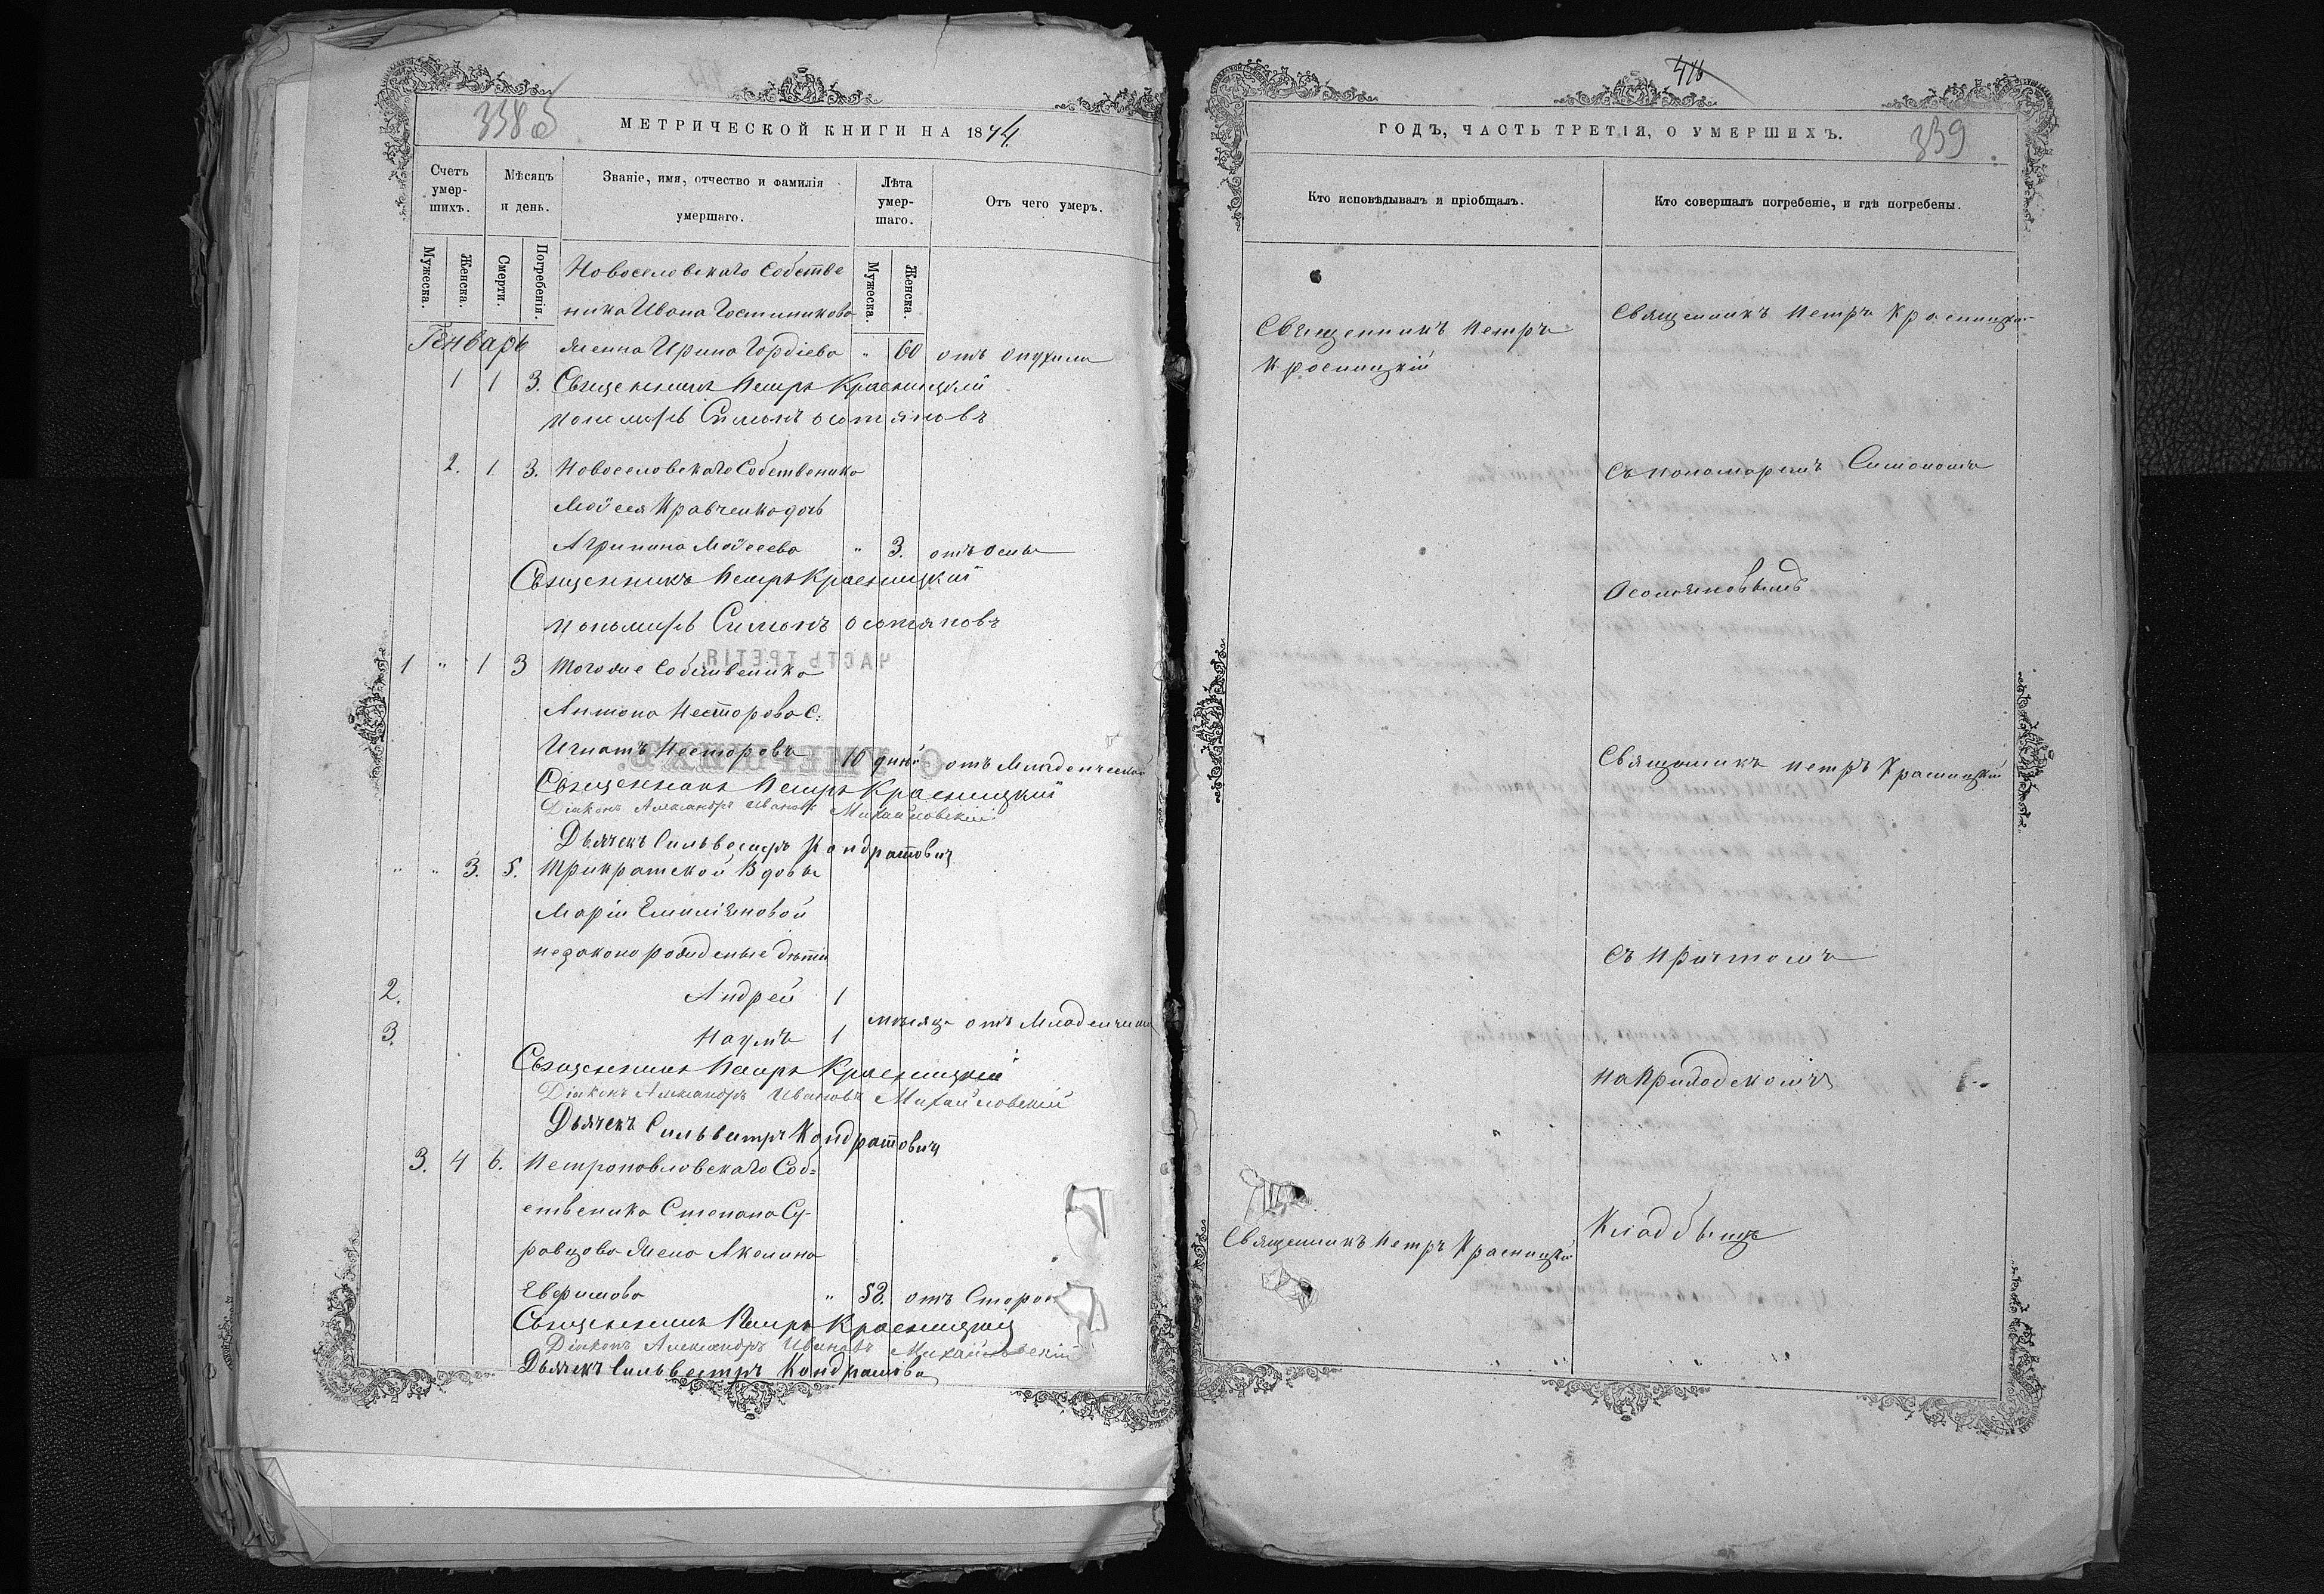 338б
МЕТРИЧЕСКОЙ КНИГИ НА 1874
Счетъ умер-шихъ.
Мѣсяцъ и день.
Званіе, имя, отчество и фамилія умершаго.
Лѣта умер-шаго.
Отъ чего умеръ.
Мужеска.
Женска.
Смерти.
Погребенія.
Мужеска.
Женска.
Новоселовскаго Собстве
ника Ивана Гостиникова
Генварь
жена Ирина Гордіева " 60 отъ опухли
1 1 3. Священникъ Петръ Красницкій
пономарь Симонъ Осотяновъ
2. 1. 3. Новоселовскаго Собственика
Мойсея Кравченка дочь
Агрипина Мойсеева " 3. отъ оспы
Священникъ Петръ Красницкій
пономарь Симонъ Осотяновъ
1 " 1 3 Тогоже Собственика
Антона Несторова С:
Игнатъ Несторовъ 10 дній отъ Младенческой
Священникъ Петръ Красницкій
Діаконъ Александръ Ивановъ Михайловскій
Дьячекъ Сильвестръ Кондратовичъ
" " 3. 5. Трикратской Вдовы
Маріи Емиліяновой
незаконорожденые дѣти
2. Андрей 1
мѣсяца отъ Младенческой
3. Наумъ 1
Священникъ Петръ Красницкій
Діаконъ Александръ Ивановъ Михайловскій
Дьячекъ Сильвестръ Кондратовичъ
3. 4 6. Петропавловскаго Соб=
ственика Степана Су-
ровцова жена Акелина
Евфимова " 52. отъ Старо
Священникъ Петръ Красницкій
Діаконъ Александръ Ивановъ Михайловскій
Дьячекъ Сильвестръ Кондратови
416
ГОДЪ, ЧАСТЬ ТРЕТІЯ, О УМЕРШИХЪ.
339
Кто исповѣдывалъ и пріобщалъ.
Кто совершалъ погребеніе, и гдѣ погребены.
Священникъ Петръ
Красницкій
Священникъ Петръ Красницкій
Съ пономаремъ Симономъ
Осотяновымъ
Священникъ Петръ Красницкій
Съ Причтомъ
на Приходскомъ
Священникъ Петръ Красницкій
Кладбыще